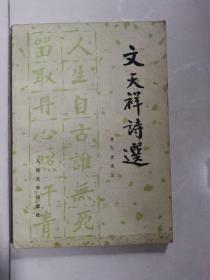 文天祥詩選
人生自古誰無死
留取丹心照汗青
人民文学出版社